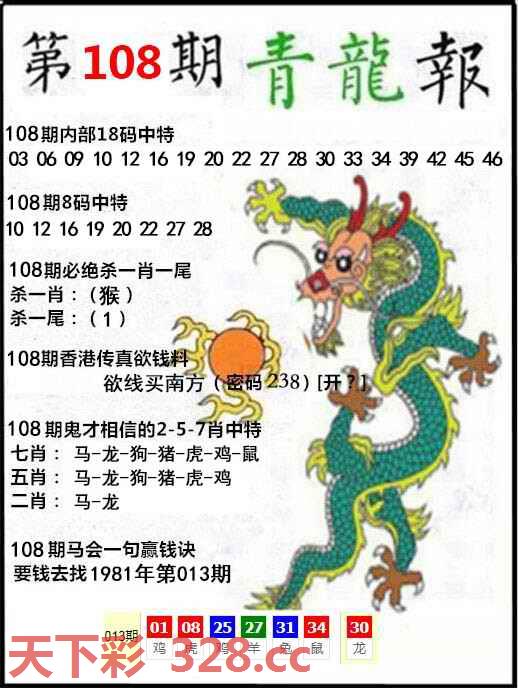 第108期青龍報
108期内部18码中特
03 06 09 10 12 16 19 20 22 27 28 30 33 34 39 42 45 46
108期8码中特
10 12 16 19 20 22 27 28
108期必绝杀一肖一尾
杀一肖：（猴）
杀一尾：（1）
108期香港传真欲钱料
欲线买南方（密码238）[开？]
108期鬼才相信的2-5-7肖中特
七肖： 马-龙-狗-猪-虎-鸡-鼠
五肖： 马-龙-狗-猪-虎-鸡
二肖： 马-龙
108期马会一句赢钱诀
要钱去找1981年第013期
013期 01 08 25 27 31 34 30
鸡 虎 鸡 羊 兔 鼠 龙
天下彩 328.cc